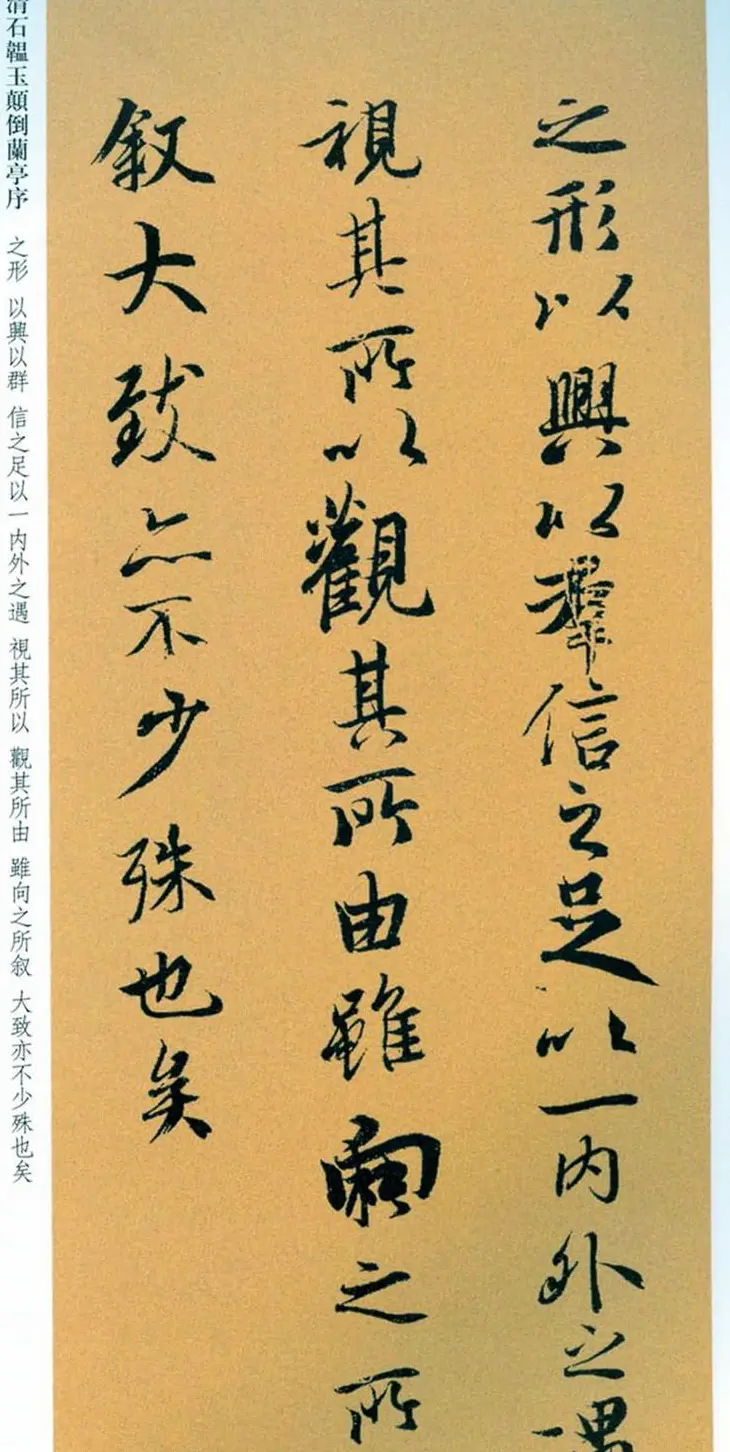 之形以興以羣信之足以一内外之遇
視其所以觀其所由雖向之所
叙大致亦不少殊也矣
清石韞玉顛倒蘭亭序 之形 以興以群 信之足以一内外之遇 視其所以 觀其所由 雖向之所叙 大致亦不少殊也矣